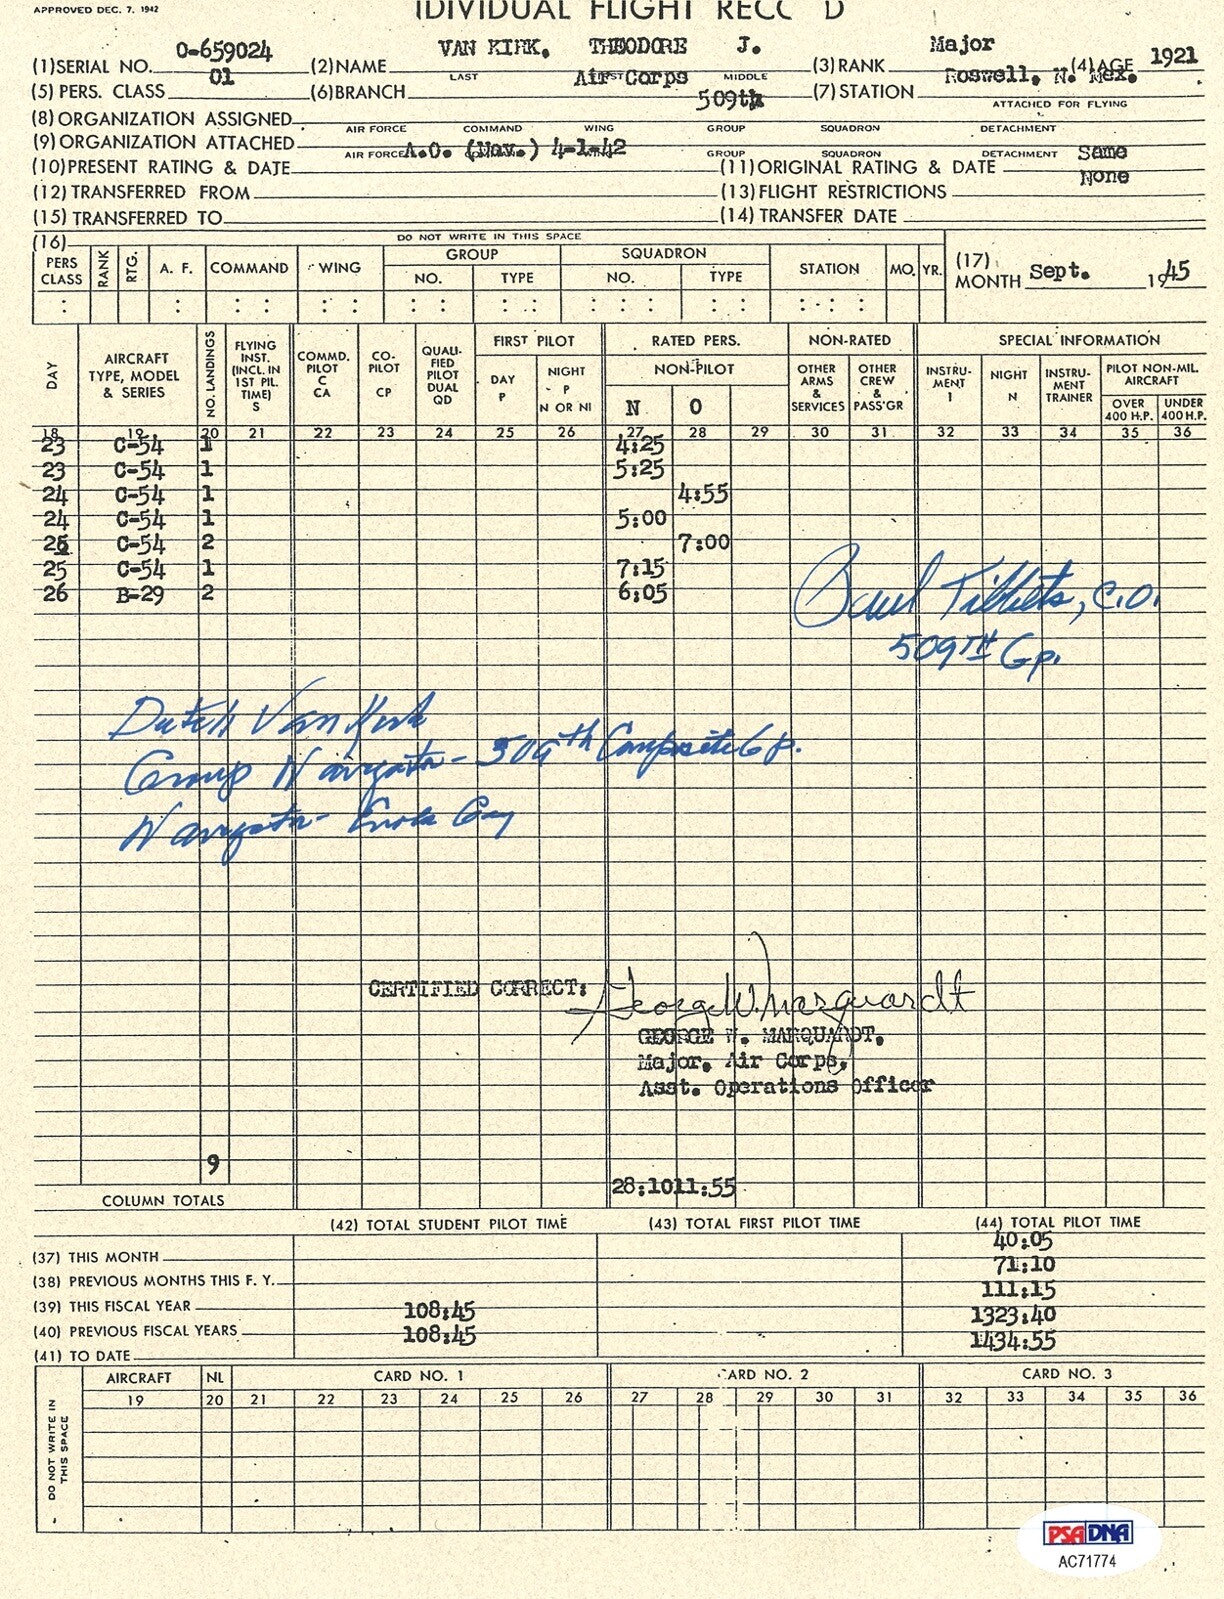 APPROVED DEC. 7. 1942
IDIVIDUAL FLIGHT REC D
(1) SERIAL NO. 0-659024 (2) NAME VAN KIRK, THEODORE J. (3) RANK Major (4) AGE 1921
LAST FIRST MIDDLE
(5) PERS. CLASS 01 (6) BRANCH Air Corps (7) STATION Roswell, N. Mex.
ATTACHED FOR FLYING
(8) ORGANIZATION ASSIGNED 509th
AIR FORCE COMMAND WING GROUP SQUADRON DETACHMENT
(9) ORGANIZATION ATTACHED
AIR FORCE COMMAND WING GROUP SQUADRON DETACHMENT
(10) PRESENT RATING & DATE A.O. (Nav.) 4-1-42 (11) ORIGINAL RATING & DATE Same
(12) TRANSFERRED FROM (13) FLIGHT RESTRICTIONS None
(15) TRANSFERRED TO (14) TRANSFER DATE
(16) DO NOT WRITE IN THIS SPACE
PERS CLASS RANK RTG. A. F. COMMAND WING GROUP NO. TYPE SQUADRON NO. TYPE STATION MO. YR.
(17) MONTH Sept. 1945
DAY AIRCRAFT TYPE, MODEL & SERIES NO. LANDINGS FLYING INST. (INCL. IN 1ST PIL. TIME) S COMMD. PILOT C CA CO-PILOT CP QUALI-FIED PILOT DUAL QD FIRST PILOT DAY P NIGHT P N OR NI RATED PERS. NON-PILOT N O NON-RATED OTHER ARMS & SERVICES OTHER CREW & PASS'GR SPECIAL INFORMATION INSTRU-MENT I NIGHT N INSTRU-MENT TRAINER PILOT NON-MIL. AIRCRAFT OVER 400 H.P. UNDER 400 H.P.
18 19 20 21 22 23 24 25 26 27 28 29 30 31 32 33 34 35 36
23 C-54 1 4:25
23 C-54 1 5:25
24 C-54 1 4:55
24 C-54 1 5:00
C-54 2 7:00
25 C-54 1 7:15
26 B-29 2 6:05
Paul Tibbets, C.O.
509TH Gp.
Dutch Van Kirk
Group Navigator - 509th Composite Gp.
Navigator - Enola Gay
CERTIFIED CORRECT: George W. Marquardt
GEORGE W. MARQUARDT,
Major, Air Corps,
Asst. Operations Officer
9
COLUMN TOTALS 28:10 11:55
(42) TOTAL STUDENT PILOT TIME (43) TOTAL FIRST PILOT TIME (44) TOTAL PILOT TIME
(37) THIS MONTH 40:05
(38) PREVIOUS MONTHS THIS F. Y. 71:10
(39) THIS FISCAL YEAR 111:15
(40) PREVIOUS FISCAL YEARS 108:45 1323:40
(41) TO DATE 108:45 1434:55
DO NOT WRITE IN THIS SPACE
AIRCRAFT NL CARD NO. 1 CARD NO. 2 CARD NO. 3
19 20 21 22 23 24 25 26 27 28 29 30 31 32 33 34 35 36
PSA DNA
AC71774